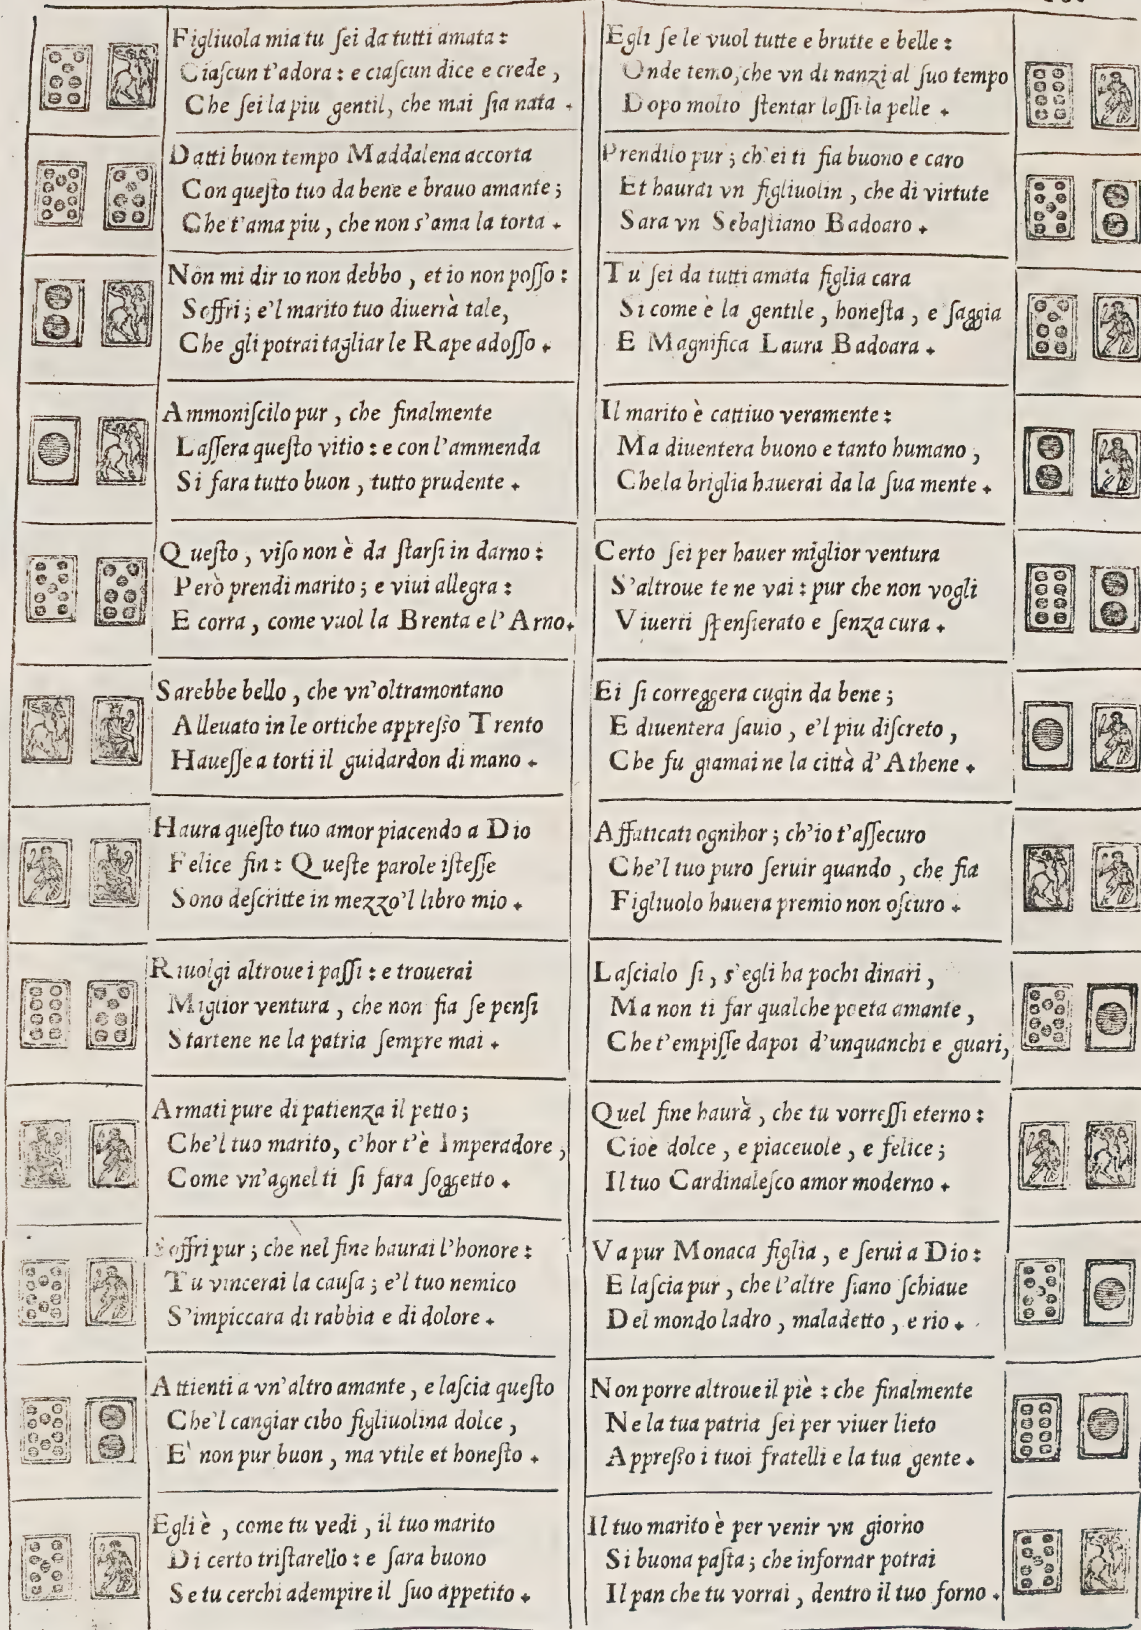 Figliuola mia tu ſei da tutti amata :
Ciaſcun t'adora : e ciaſcun dice e crede ,
Che ſei la piu gentil, che mai ſia nata .
Datti buon tempo Maddalena accorta
Con queſto tuo da bene e brauo amante ;
Che t'ama piu , che non s'ama la torta .
Non mi dir io non debbo , et io non poſſo :
Soffri ; e'l marito tuo diuerrà tale,
Che gli potrai tagliar le Rape adoſſo .
Ammoniſcilo pur , che finalmente
Laſſera queſto vitio : e con l'ammenda
Si fara tutto buon , tutto prudente .
Queſto , viſo non è da ſtarſi in darno :
Però prendi marito ; e viui allegra :
E corra , come vuol la Brenta e l'Arno.
Sarebbe bello , che vn'oltramontano
Alleuato in le ortiche appreſſo Trento
Haueſſe a torti il guidardon di mano .
Haura queſto tuo amor piacendo a Dio
Felice fin : Queſte parole iſteſſe
Sono deſcritte in mezzo'l libro mio .
Riuolgi altroue i paſſi : e trouerai
Miglior ventura , che non fia ſe penſi
Startene ne la patria ſempre mai .
Armati pure di patienza il petto ;
Che'l tuo marito, c'hor t'è Imperadore ,
Come vn'agnel ti ſi fara ſoggetto .
Soffri pur ; che nel fine haurai l'honore :
Tu vincerai la cauſa ; e'l tuo nemico
S'impiccara di rabbia e di dolore .
Attienti a vn'altro amante , e laſcia queſto
Che'l cangiar cibo figliuolina dolce ,
E' non pur buon , ma vtile et honeſto .
Egli è , come tu vedi , il tuo marito
Di certo triſtarello : e ſara buono
Se tu cerchi adempire il ſuo appetito .
Egli ſe le vuol tutte e brutte e belle :
Onde temo, che vn di nanzi al ſuo tempo
Dopo molto ſtentar loſſi la pelle .
Prendilo pur ; ch'ei ti fia buono e caro
Et haurai vn figliuolin , che di virtute
Sara vn Sebaſtiano Badoaro .
Tu ſei da tutti amata figlia cara
Si come è la gentile , honeſta , e ſaggia
E Magnifica Laura Badoara .
Il marito è cattiuo veramente :
Ma diuentera buono e tanto humano ,
Che la briglia hauerai da la ſua mente .
Certo ſei per hauer miglior ventura
S'altroue te ne vai : pur che non vogli
Viuerti ſpenſierato e ſenza cura .
Ei ſi correggera cugin da bene ;
E diuentera ſauio , e'l piu diſcreto ,
Che fu giamai ne la città d'Athene .
Affaticati ognihor ; ch'io t'aſſecuro
Che'l tuo puro ſeruir quando , che fia
Figliuolo hauera premio non oſcuro .
Laſcialo ſi , s'egli ha pochi dinari ,
Ma non ti far qualche poeta amante ,
Che t'empiſſe dapoi d'unquanchi e guari,
Quel fine haurà , che tu vorreſſi eterno :
Cioè dolce , e piaceuole , e felice ;
Il tuo Cardinaleſco amor moderno .
Va pur Monaca figlia , e ſerui a Dio :
E laſcia pur , che l'altre ſiano ſchiaue
Del mondo ladro , maladetto , e rio .
Non porre altroue il piè : che finalmente
Ne la tua patria ſei per viuer lieto
Appreſſo i tuoi fratelli e la tua gente .
Il tuo marito è per venir vn giorno
Si buona paſta ; che infornar potrai
Il pan che tu vorrai , dentro il tuo forno .